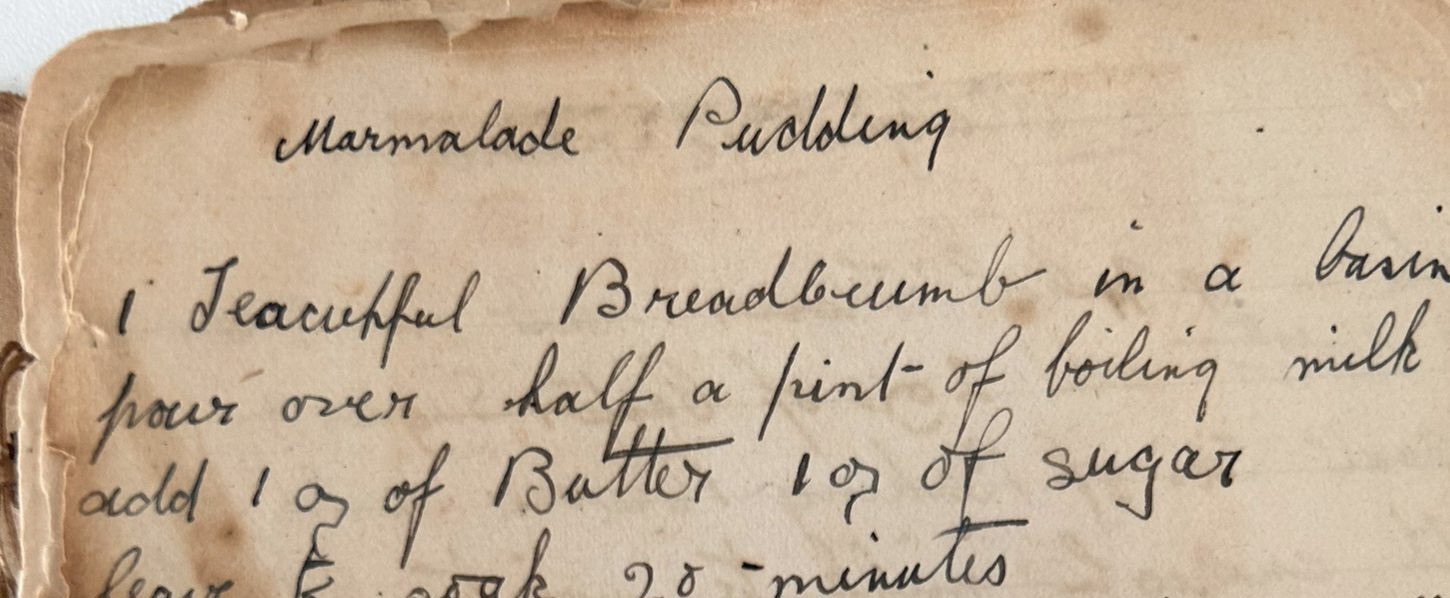 Marmalade Pudding
1 Teacupful Breadcrumb in a basin
pour over half a pint of boiling milk
add 1 oz of Butter 1 oz of sugar
leave to soak 20 minutes